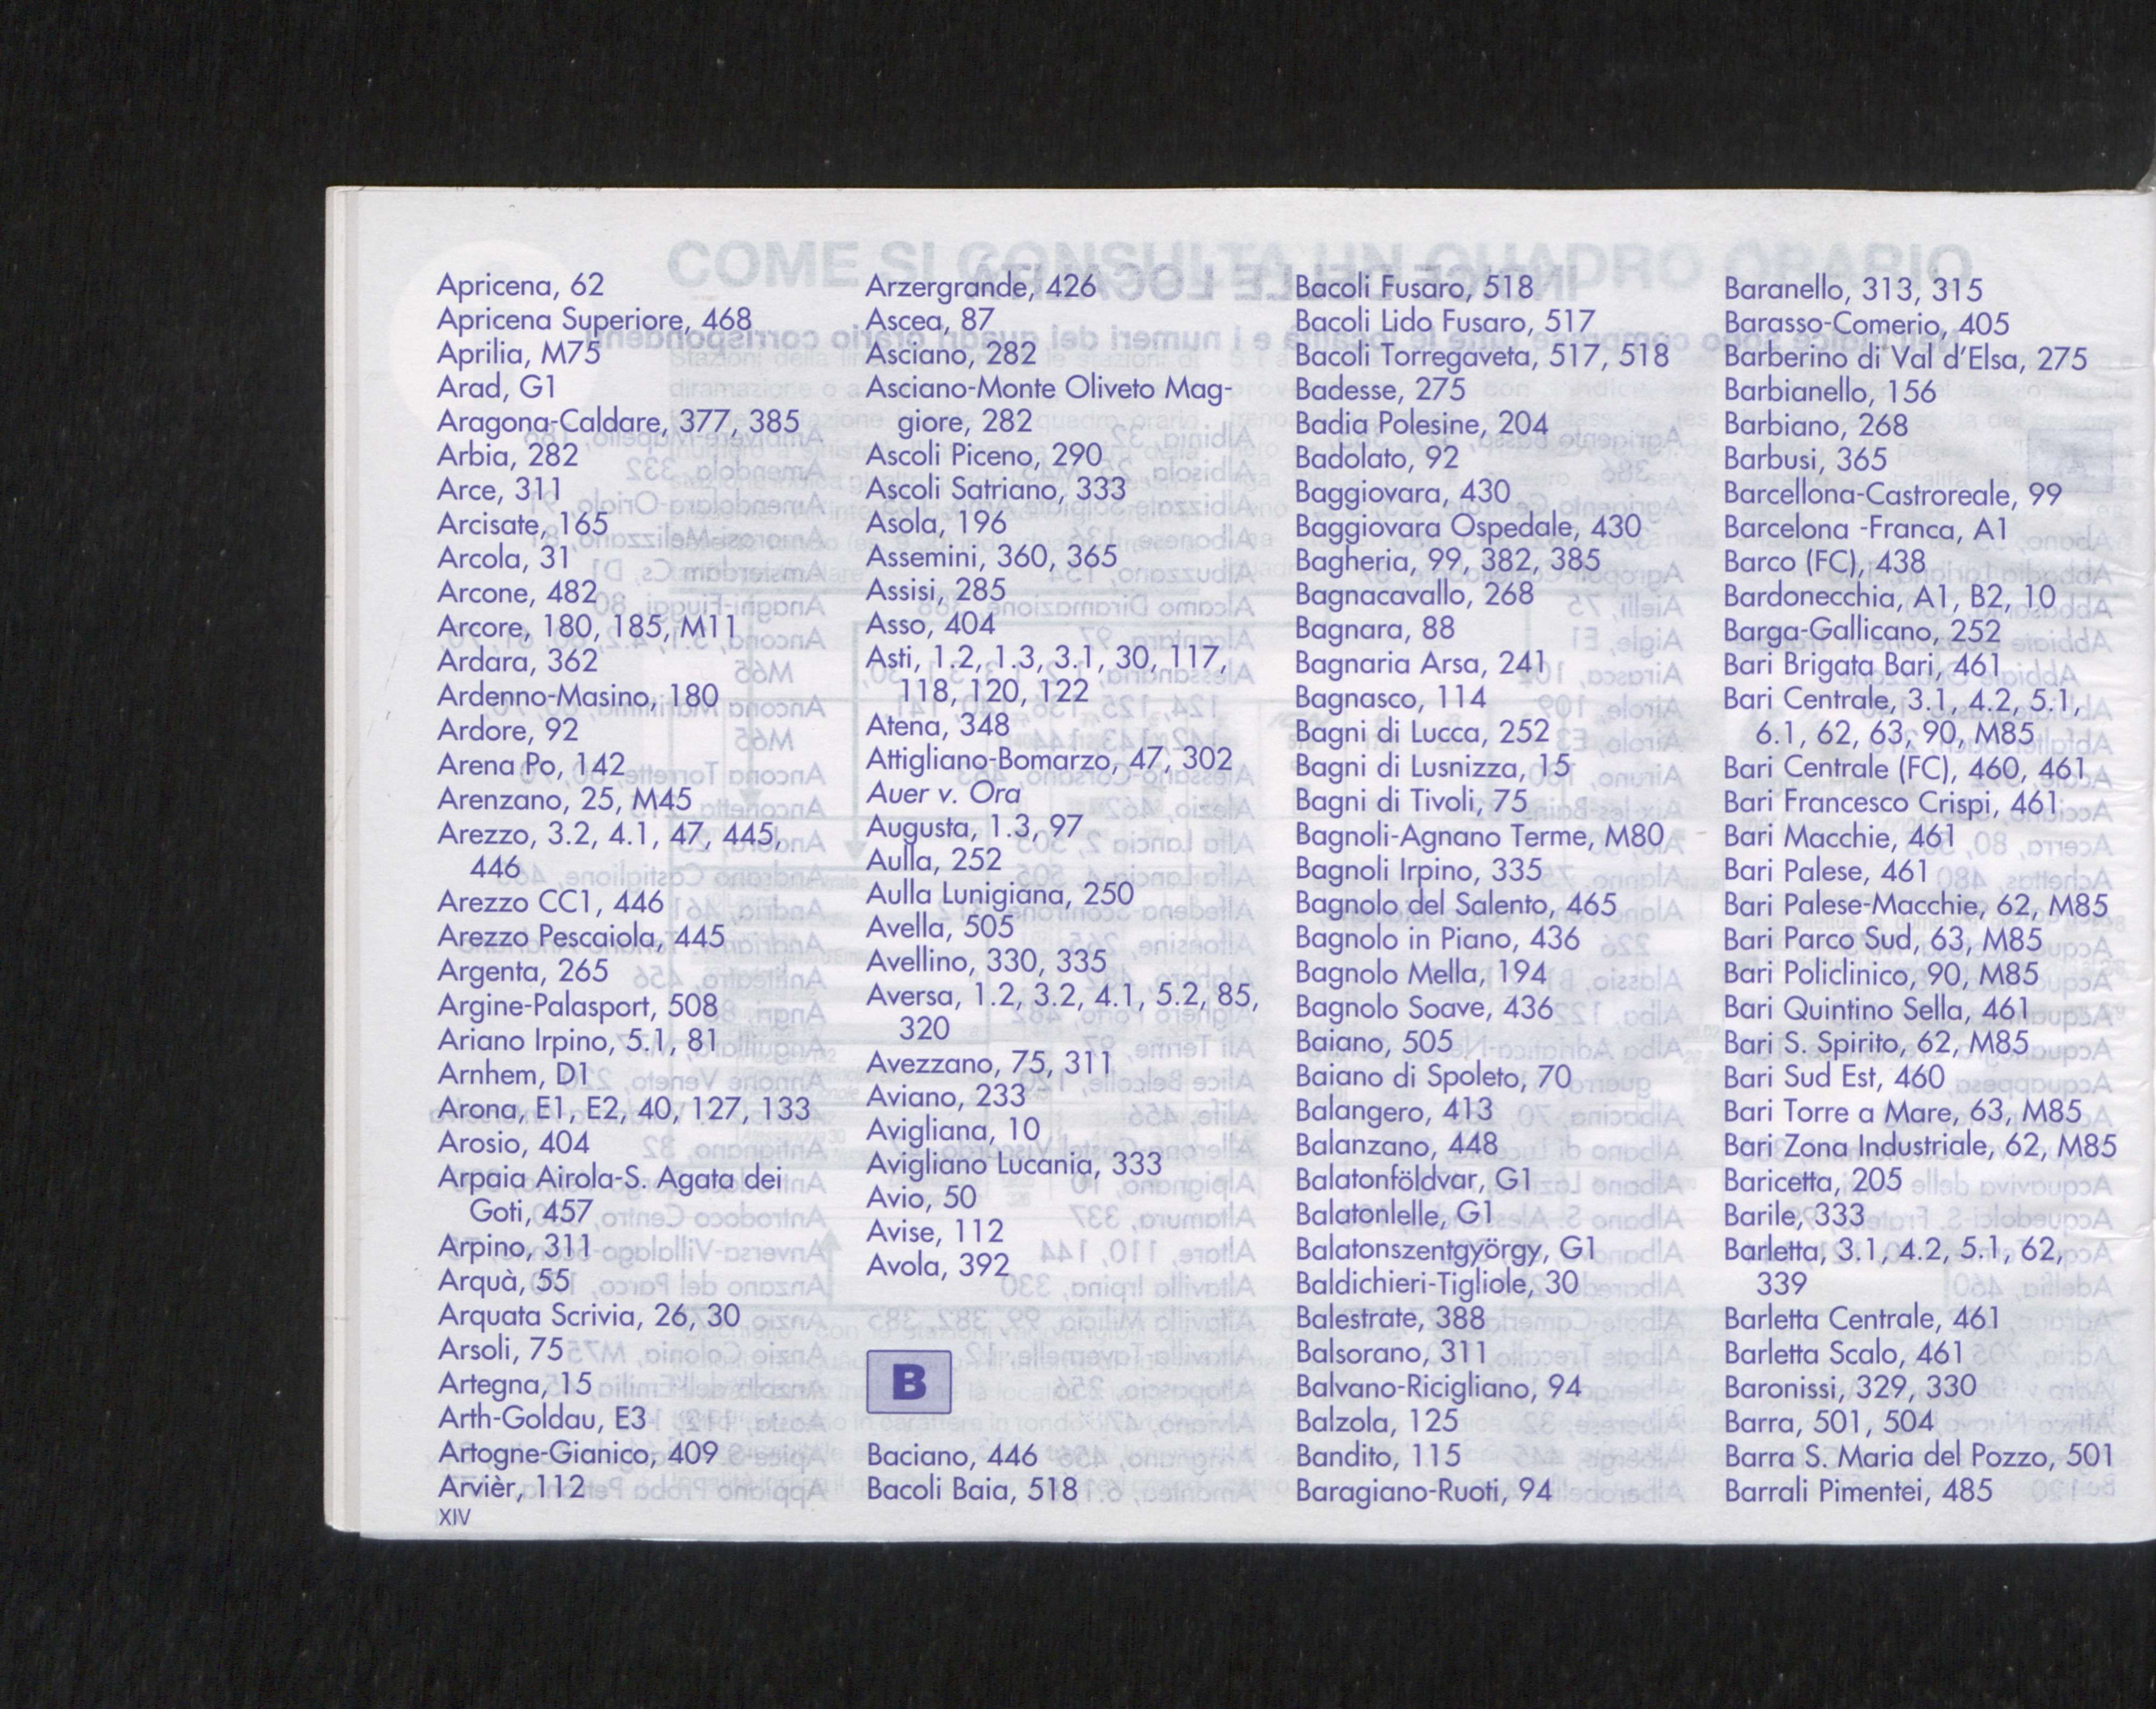 Apricena, 62
Apricena Superiore, 468
Aprilia, M75
Arad, G1
Aragona-Caldare, 377, 385
Arbia, 282
Arce, 311
Arcisate, 165
Arcola, 31
Arcone, 482
Arcore, 180, 185, M11
Ardara, 362
Ardenno-Masino, 180
Ardore, 92
Arena Po, 142
Arenzano, 25, M45
Arezzo, 3.2, 4.1, 47, 445,
446
Arezzo CC1, 446
Arezzo Pescaiola, 445
Argenta, 265
Argine-Palasport, 508
Ariano Irpino, 5.1, 81
Arnhem, D1
Arona, E1, E2, 40, 127, 133
Arosio, 404
Arpaia Airola-S. Agata dei
Goti, 457
Arpino, 311
Arquà, 55
Arquata Scrivia, 26, 30
Arsoli, 75
Artegna, 15
Arth-Goldau, E3
Artogne-Gianico, 409
Arvièr, 112
XIV
Arzergrande, 426
Ascea, 87
Asciano, 282
Asciano-Monte Oliveto Mag-
giore, 282
Ascoli Piceno, 290
Ascoli Satriano, 333
Asola, 196
Assemini, 360, 365
Assisi, 285
Asso, 404
Asti, 1.2, 1.3, 3.1, 30, 117,
118, 120, 122
Atena, 348
Attigliano-Bomarzo, 47, 302
Auer v. Ora
Augusta, 1.3, 97
Aulla, 252
Aulla Lunigiana, 250
Avella, 505
Avellino, 330, 335
Aversa, 1.2, 3.2, 4.1, 5.2, 85,
320
Avezzano, 75, 311
Aviano, 233
Avigliana, 10
Avigliano Lucania, 333
Avio, 50
Avise, 112
Avola, 392
B
Baciano, 446
Bacoli Baia, 518
Bacoli Fusaro, 518
Bacoli Lido Fusaro, 517
Bacoli Torregaveta, 517, 518
Badesse, 275
Badia Polesine, 204
Badolato, 92
Baggiovara, 430
Baggiovara Ospedale, 430
Bagheria, 99, 382, 385
Bagnacavallo, 268
Bagnara, 88
Bagnaria Arsa, 241
Bagnasco, 114
Bagni di Lucca, 252
Bagni di Lusnizza, 15
Bagni di Tivoli, 75
Bagnoli-Agnano Terme, M80
Bagnoli Irpino, 335
Bagnolo del Salento, 465
Bagnolo in Piano, 436
Bagnolo Mella, 194
Bagnolo Soave, 436
Baiano, 505
Baiano di Spoleto, 70
Balangero, 413
Balanzano, 448
Balatonföldvar, G1
Balatonlelle, G1
Balatonszentgyörgy, G1
Baldichieri-Tigliole, 30
Balestrate, 388
Balsorano, 311
Balvano-Ricigliano, 94
Balzola, 125
Bandito, 115
Baragiano-Ruoti, 94
Baranello, 313, 315
Barasso-Comerio, 405
Barberino di Val d'Elsa, 275
Barbianello, 156
Barbiano, 268
Barbusi, 365
Barcellona-Castroreale, 99
Barcelona -Franca, A1
Barco (FC), 438
Bardonecchia, A1, B2, 10
Barga-Gallicano, 252
Bari Brigata Bari, 461
Bari Centrale, 3.1, 4.2, 5.1,
6.1, 62, 63, 90, M85
Bari Centrale (FC), 460, 461
Bari Francesco Crispi, 461
Bari Macchie, 461
Bari Palese, 461
Bari Palese-Macchie, 62, M85
Bari Parco Sud, 63, M85
Bari Policlinico, 90, M85
Bari Quintino Sella, 461
Bari S. Spirito, 62, M85
Bari Sud Est, 460
Bari Torre a Mare, 63, M85
Bari Zona Industriale, 62, M85
Baricetta, 205
Barile, 333
Barletta, 3.1, 4.2, 5.1, 62,
339
Barletta Centrale, 461
Barletta Scalo, 461
Baronissi, 329, 330
Barra, 501, 504
Barra S. Maria del Pozzo, 501
Barrali Pimentei, 485